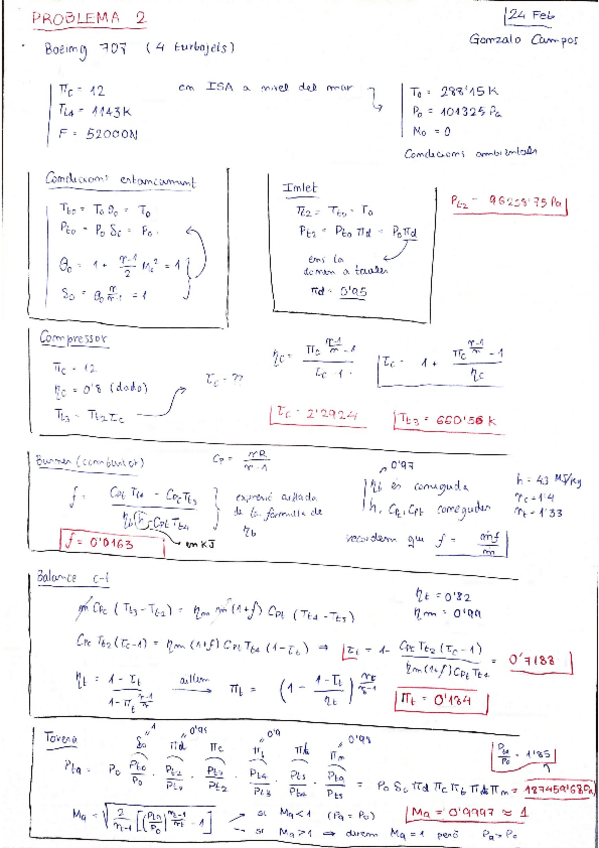 PROBLEMA 2
24 Feb
Gonzalo Campos
Boeing 707 (4 turbojets)
πc = 12
Tt4 = 1143K
F = 52000N
em ISA a nivel del mar
T0 = 288'15K
P0 = 101325 Pa
M0 = 0
Condicions ambientals
Condicions estancament
Tt0 = T0 θ0 = T0
Pt0 = P0 δ0 = P0
θ0 = 1 + (γ-1)/2 M0² = 1
δ0 = θ0^(γ/(γ-1)) = 1
Inlet
Tt2 = Tt0 = T0
Pt2 = Pt0 πd = P0 πd
ens la
donen a taules
πd = 0'95
Pt2 = 96258'75 Pa
Compressor
πc = 12
ηc = 0'8 (dado)
Tt3 = Tt2 τc
τc = ??
ηc = (πc^((γ-1)/γ) - 1)/(τc - 1)
τc = 1 + (πc^((γ-1)/γ) - 1)/ηc
τc = 2'2924
Tt3 = 660'56 K
Burner (combustor)
Cp = γR/(γ-1)
f = (Cpt Tt4 - Cpc Tt3)/(ηb h - Cpt Tt4)
expresió aïllada
de la fórmula de
ηb
0'97
ηb és coneguda
h, Cpc, Cpt conegudes
h = 43 MJ/kg
γc = 1'4
γt = 1'33
f = 0'0163
en KJ
recordem que f = ṁf/ṁ
Balance c-t
ṁ Cpc (Tt3 - Tt2) = ηm ṁ (1+f) Cpt (Tt4 - Tt5)
ηt = 0'82
ηm = 0'99
Cpc Tt2 (τc - 1) = ηm (1+f) Cpt Tt4 (1 - τt) ⇒ τt = 1 - Cpc Tt2 (τc - 1)/(ηm (1+f) Cpt Tt4) = 0'7188
ηt = (1 - τt)/(1 - πt^((γ-1)/γ))
aïllem
πt = (1 - (1 - τt)/ηt)^(γt/(γt-1))
πt = 0'184
Tovera
δ0 πd πc πb πt πn
1 0'95 0'9 0'98
Pt9 = P0 Pt0/P0 · Pt2/Pt0 · Pt3/Pt2 · Pt4/Pt3 · Pt5/Pt4 · Pt9/Pt5 = P0 δ0 πd πc πb πt πn = 187459'68 Pa
Pt9/P0 = 1'85
M9 = √(2/(γt-1) [(Pt9/P0)^((γt-1)/γt) - 1])
si M9 < 1 (P9 = P0)
si M9 > 1 ⇒ direm M9 = 1 però P9 > P0
M9 = 0'9997 ≈ 1